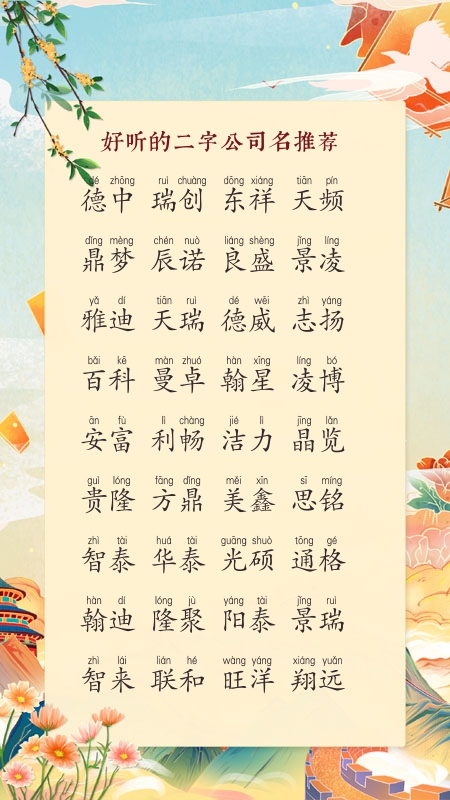 好听的二字公司名推荐
dé zhōng ruì chuàng dōng xiáng tiān pín
德中 瑞创 东祥 天频
dǐng mèng chén nuò liáng shèng jǐng líng
鼎梦 辰诺 良盛 景凌
yǎ dí tiān ruì dé wēi zhì yáng
雅迪 天瑞 德威 志扬
bǎi kē màn zhuó hàn xīng líng bó
百科 曼卓 翰星 凌博
ān fù lì chàng jié lì jīng lǎn
安富 利畅 洁力 晶览
guì lóng fāng dǐng měi xīn sī míng
贵隆 方鼎 美鑫 思铭
zhì tài huá tài guāng shuò tōng gé
智泰 华泰 光硕 通格
hàn dí lóng jù yáng tài jǐng ruì
翰迪 隆聚 阳泰 景瑞
zhì lái lián hé wàng yáng xiáng yuǎn
智来 联和 旺洋 翔远